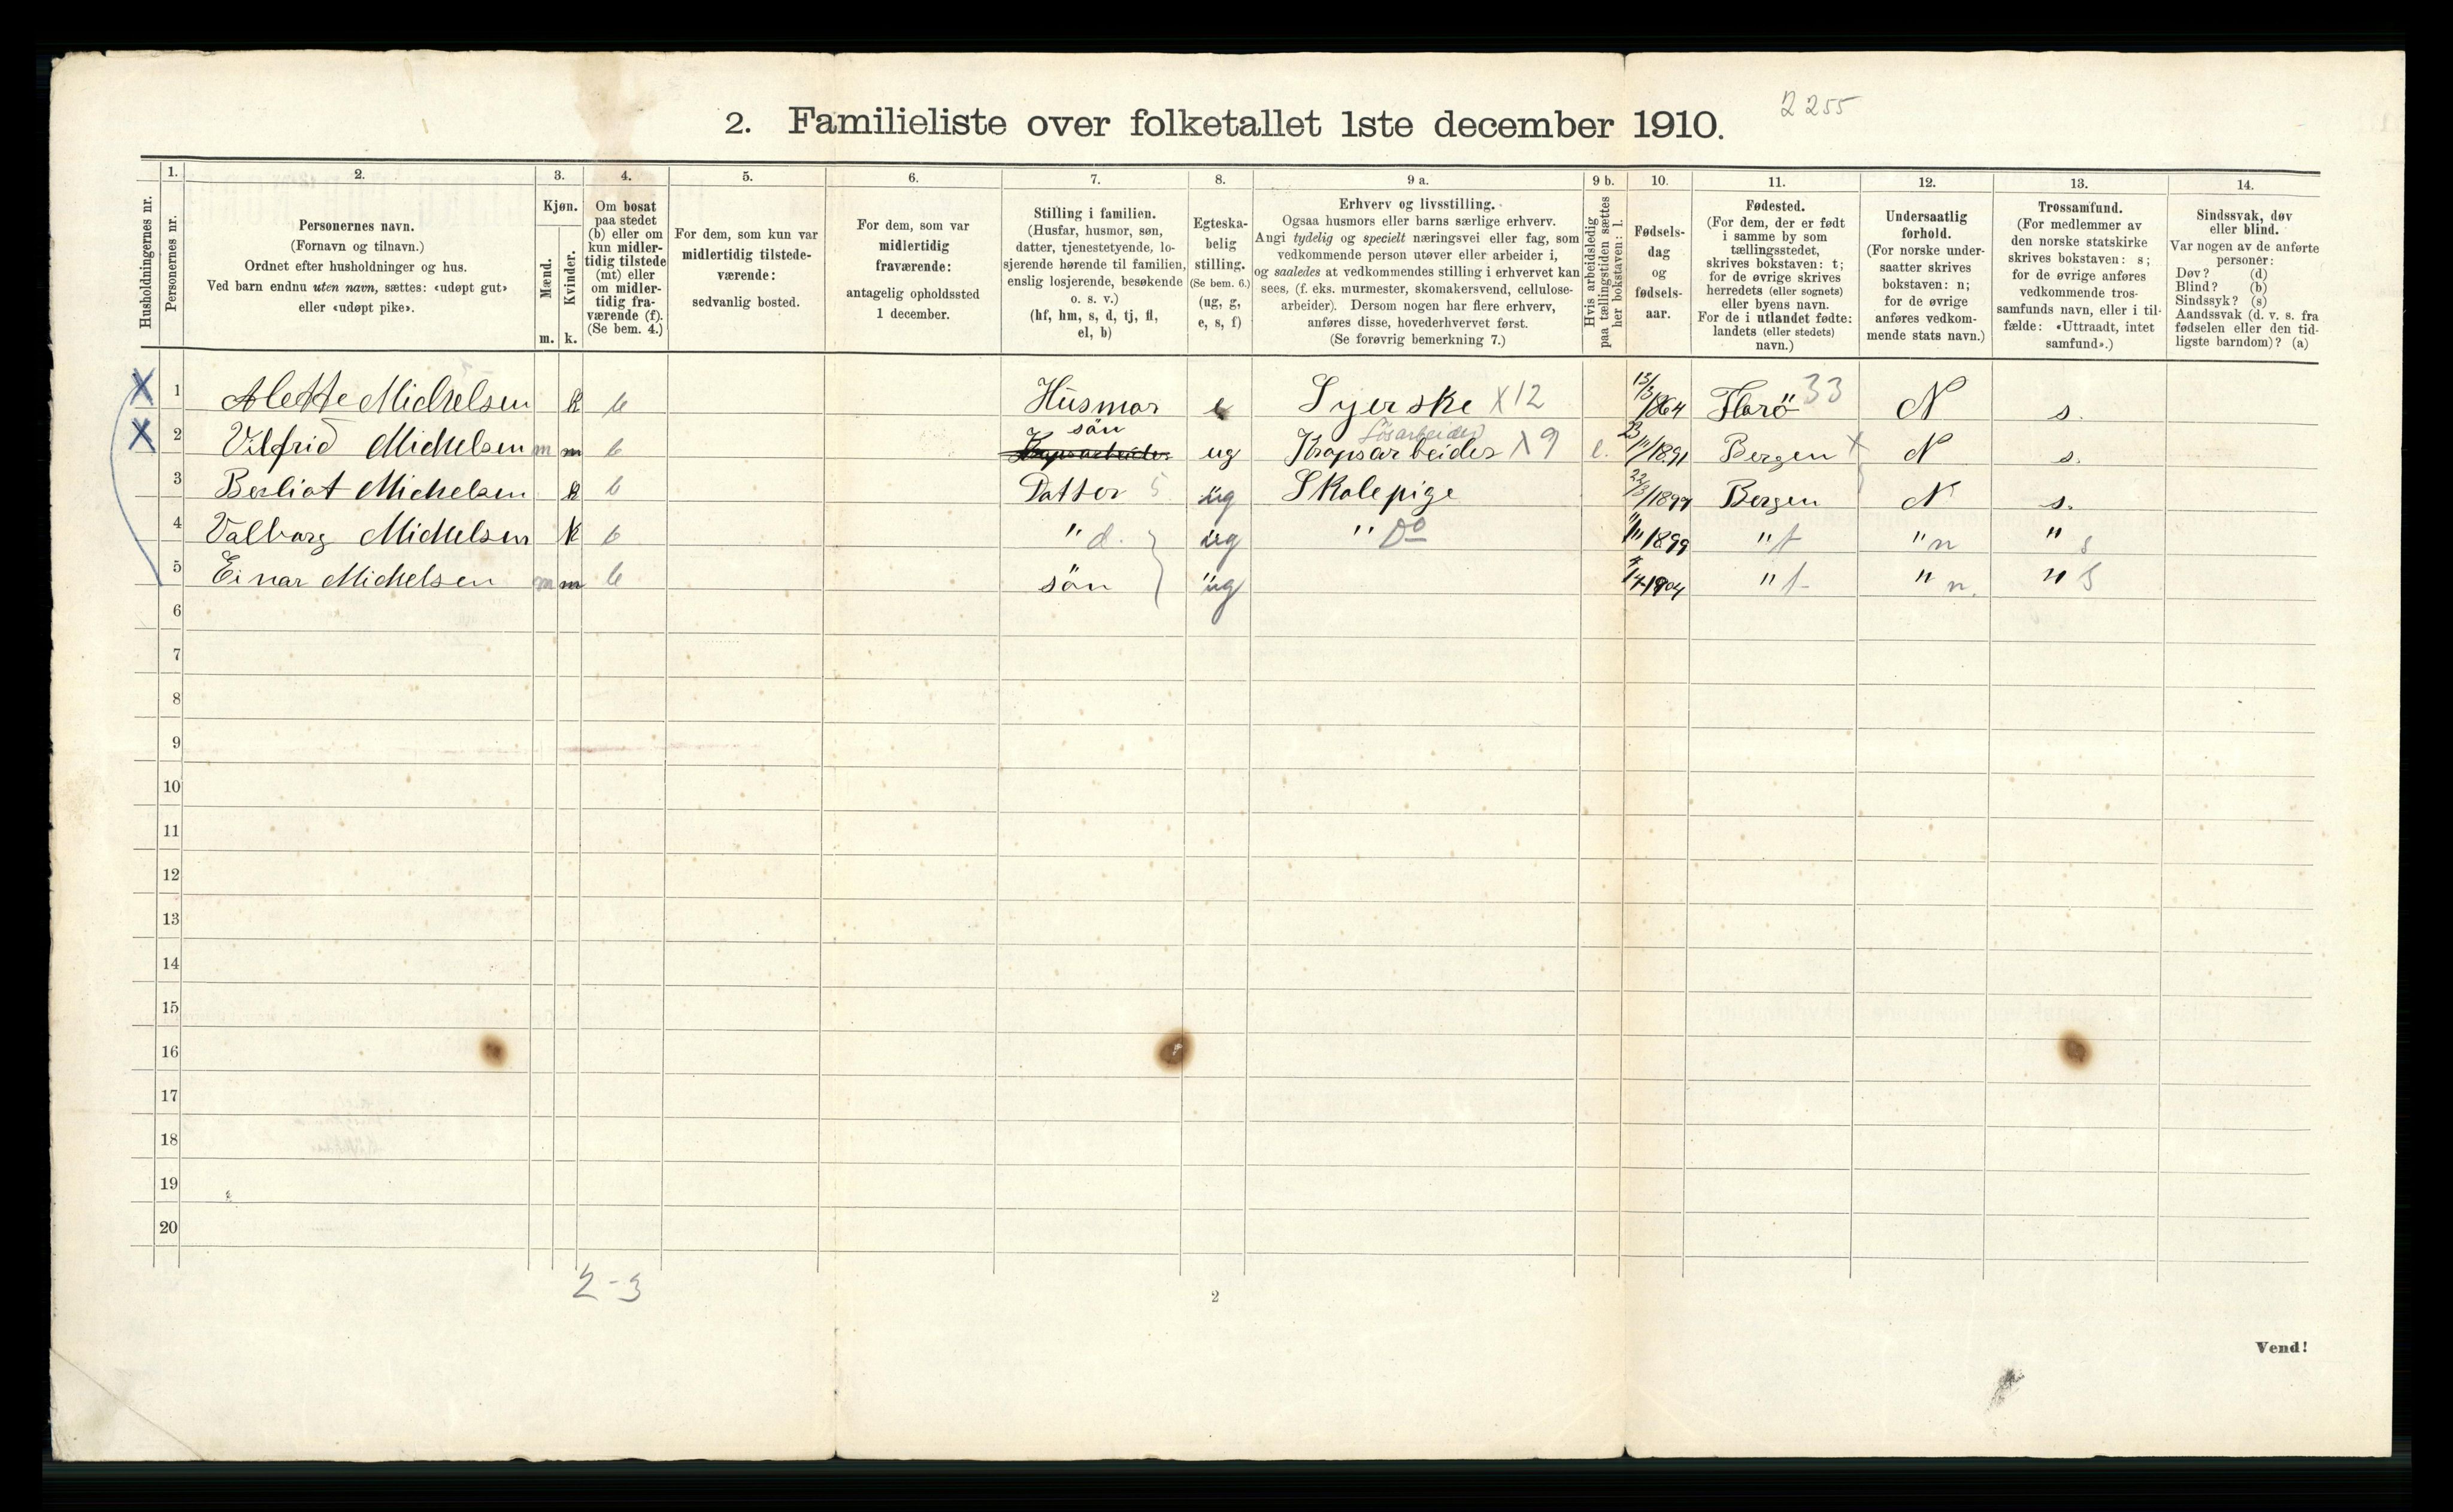 2. Familieliste over folketallet 1ste december 1910.
2255
Husholdningernes nr.
1.
Personernes nr.
2.
Personernes navn.
(Fornavn og tilnavn.)
Ordnet efter husholdninger og hus.
Ved barn endnu uten navn, sættes: «udøpt gut»
eller «udøpt pike».
3.
Kjøn.
Mænd.
Kvinder.
m. k.
4.
Om bosat
paa stedet
(b) eller om
kun midler-
tidig tilstede
(mt) eller
om midler-
tidig fra-
værende (f).
(Se bem. 4.)
5.
For dem, som kun var
midlertidig tilstede-
værende:
sedvanlig bosted.
6.
For dem, som var
midlertidig
fraværende:
antagelig opholdssted
1 december.
7.
Stilling i familien.
(Husfar, husmor, søn,
datter, tjenestetyende, lo-
sjerende hørende til familien,
enslig losjerende, besøkende
o. s. v.)
(hf, hm, s, d, tj, fl,
el, b)
8.
Egteska-
belig
stilling.
(Se bem. 6.)
(ug, g,
e, s, f)
9 a.
Erhverv og livsstilling.
Ogsaa husmors eller barns særlige erhverv.
Angi tydelig og specielt næringsvei eller fag, som
vedkommende person utøver eller arbeider i,
og saaledes at vedkommendes stilling i erhvervet kan
sees, (f. eks. murmester, skomakersvend, cellulose-
arbeider). Dersom nogen har flere erhverv,
anføres disse, hovederhvervet først.
(Se forøvrig bemerkning 7.)
9 b.
Hvis arbeidsledig
paa tællingstiden sættes
her bokstaven: l.
10.
Fødsels-
dag
og
fødsels-
aar.
11.
Fødested.
(For dem, der er født
i samme by som
tællingsstedet,
skrives bokstaven: t;
for de øvrige skrives
herredets (eller sognets)
eller byens navn.
For de i utlandet fødte:
landets (eller stedets)
navn.)
12.
Undersaatlig
forhold.
(For norske under-
saatter skrives
bokstaven: n;
for de øvrige
anføres vedkom-
mende stats navn.)
13.
Trossamfund.
(For medlemmer av
den norske statskirke
skrives bokstaven: s;
for de øvrige anføres
vedkommende tros-
samfunds navn, eller i til-
fælde: «Uttraadt, intet
samfund».)
14.
Sindssvak, døv
eller blind.
Var nogen av de anførte
personer:
Døv? (d)
Blind? (b)
Sindssyk? (s)
Aandssvak (d. v. s. fra
fødselen eller den tid-
ligste barndom)? (a)
X 1 Alette Michelsen k b Husmor e Syerske X12 13/3 1864 Florö 33 N s.
X 2 Vilfrid Michelsen m m b sön ug Løsarbeider Kropsarbeider X9 l. 23/11 1891 Bergen X N s.
3 Berliot Michelsen k b Datter 5 ug Skolepige 22/3 1897 Bergen N s.
4 Valborg Michelsen k b " d. ug " Do 1899 " t " n " s
5 Einar Michelsen m m b sön ug 1904 " t " n. " s
6
7
8
9
10
11
12
13
14
15
16
17
18
19
20
2-3
2
Vend!